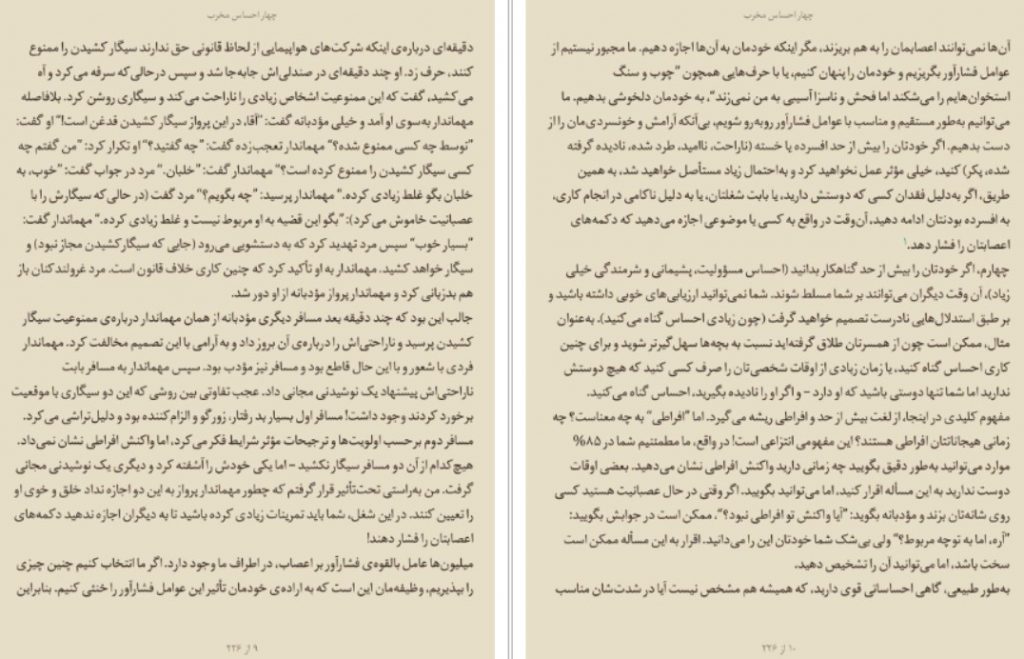 چهار احساس مخرب
دقیقه‌ای درباره‌ی اینکه شرکت‌های هواپیمایی از لحاظ قانونی حق ندارند سیگار کشیدن را ممنوع
کنند، حرف زد. او چند دقیقه‌ای در صندلی‌اش جابه‌جا شد و سپس درحالی‌که سرفه می‌کرد و آه
می‌کشید، گفت که این ممنوعیت اشخاص زیادی را ناراحت می‌کند و سیگاری روشن کرد. بلافاصله
مهماندار به‌سوی او آمد و خیلی مؤدبانه گفت: "آقا، در این پرواز سیگار کشیدن قدغن است!" او گفت:
"توسط چه کسی ممنوع شده؟" مهماندار تعجب‌زده گفت: "چه گفتید؟" او تکرار کرد: "من گفتم چه
کسی سیگار کشیدن را ممنوع کرده است؟" مهماندار گفت: "خلبان." مرد در جواب گفت: "خوب، به
خلبان بگو غلط زیادی کرده." مهماندار پرسید: "چه بگویم؟" مرد گفت (در حالی که سیگارش را با
عصبانیت خاموش می‌کرد): "بگو این قضیه به او مربوط نیست و غلط زیادی کرده." مهماندار گفت:
"بسیار خوب" سپس مرد تهدید کرد که به دستشویی می‌رود (جایی که سیگارکشیدن مجاز نبود) و
سیگار خواهد کشید. مهماندار به او تأکید کرد که چنین کاری خلاف قانون است. مرد غرولندکنان باز
هم بدزبانی کرد و مهماندار پرواز مؤدبانه از او دور شد.
جالب این بود که چند دقیقه بعد مسافر دیگری مؤدبانه از همان مهماندار درباره‌ی ممنوعیت سیگار
کشیدن پرسید و ناراحتی‌اش را درباره‌ی آن بروز داد و به آرامی با این تصمیم مخالفت کرد. مهماندار
فردی با شعور و با این حال قاطع بود و مسافر نیز مؤدب بود. سپس مهماندار به مسافر بابت
ناراحتی‌اش پیشنهاد یک نوشیدنی مجانی داد. عجب تفاوتی بین روشی که این دو سیگاری با موقعیت
برخورد کردند وجود داشت! مسافر اول بسیار بد رفتار، زورگو و الزام‌کننده بود و دلیل‌تراشی می‌کرد.
مسافر دوم برحسب اولویت‌ها و ترجیحات مؤثر شرایط فکر می‌کرد، اما واکنش افراطی نشان نمی‌داد.
هیچ‌کدام از آن دو مسافر سیگار نکشید – اما یکی خودش را آشفته کرد و دیگری یک نوشیدنی مجانی
گرفت. من به‌راستی تحت‌تأثیر قرار گرفتم که چطور مهماندار پرواز به این دو اجازه نداد خلق و خوی او
را تعیین کنند. در این شغل، شما باید تمرینات زیادی کرده باشید تا به دیگران اجازه ندهید دکمه‌های
اعصابتان را فشار دهند!
میلیون‌ها عامل بالقوه‌ی فشارآور بر اعصاب، در اطراف ما وجود دارد. اگر ما انتخاب کنیم چنین چیزی
را بپذیریم، وظیفه‌مان این است که به اراده‌ی خودمان تأثیر این عوامل فشارآور را خنثی کنیم. بنابراین
۹ از ۲۲۶
چهار احساس مخرب
آن‌ها نمی‌توانند اعصابمان را به هم بریزند، مگر اینکه خودمان به آن‌ها اجازه دهیم. ما مجبور نیستیم از
عوامل فشارآور بگریزیم و خودمان را پنهان کنیم، یا با حرف‌هایی همچون "چوب و سنگ
استخوان‌هایم را می‌شکند اما فحش و ناسزا آسیبی به من نمی‌زند"، به خودمان دلخوشی بدهیم. ما
می‌توانیم به‌طور مستقیم و مناسب با عوامل فشارآور روبه‌رو شویم، بی‌آنکه آرامش و خونسردی‌مان را از
دست بدهیم. اگر خودتان را بیش از حد افسرده یا خسته (ناراحت، ناامید، طرد شده، نادیده گرفته
شده، پکر) کنید، خیلی مؤثر عمل نخواهید کرد و به‌احتمال زیاد مستأصل خواهید شد، به همین
طریق، اگر به‌دلیل فقدان کسی که دوستش دارید، یا بابت شغلتان، یا به دلیل ناکامی در انجام کاری،
به افسرده بودنتان ادامه دهید، آن‌وقت در واقع به کسی یا موضوعی اجازه می‌دهید که دکمه‌های
اعصابتان را فشار دهد.۱
چهارم، اگر خودتان را بیش از حد گناهکار بدانید (احساس مسؤولیت، پشیمانی و شرمندگی خیلی
زیاد)، آن وقت دیگران می‌توانند بر شما مسلط شوند. شما نمی‌توانید ارزیابی‌های خوبی داشته باشید و
بر طبق استدلال‌هایی نادرست تصمیم خواهید گرفت (چون زیادی احساس گناه می‌کنید). به‌عنوان
مثال، ممکن است چون از همسرتان طلاق گرفته‌اید نسبت به بچه‌ها سهل‌گیرتر شوید و برای چنین
کاری احساس گناه کنید، یا زمان زیادی از اوقات شخصی‌تان را صرف کسی کنید که هیچ دوستش
ندارید اما شما تنها دوستی باشید که او دارد – و اگر او را نادیده بگیرید، احساس گناه می‌کنید.
مفهوم کلیدی در اینجا، از لغت بیش از حد و افراطی ریشه می‌گیرد. اما "افراطی" به چه معناست؟ چه
زمانی هیجاناتتان افراطی هستند؟ این مفهومی انتزاعی است! در واقع، ما مطمئنیم شما در ۸۵%
موارد می‌توانید به‌طور دقیق بگویید چه زمانی دارید واکنش افراطی نشان می‌دهید. بعضی اوقات
دوست ندارید به این مسأله اقرار کنید، اما می‌توانید بگویید. اگر وقتی در حال عصبانیت هستید کسی
روی شانه‌تان بزند و مؤدبانه بگوید: "آیا واکنش تو افراطی نبود؟". ممکن است در جوابش بگویید:
"آره، اما به توچه مربوط؟" ولی بی‌شک شما خودتان این را می‌دانید. اقرار به این مسأله ممکن است
سخت باشد، اما می‌توانید آن را تشخیص دهید.
به‌طور طبیعی، گاهی احساساتی قوی دارید، که همیشه هم مشخص نیست آیا در شدت‌شان مناسب
۱۰ از ۲۲۶